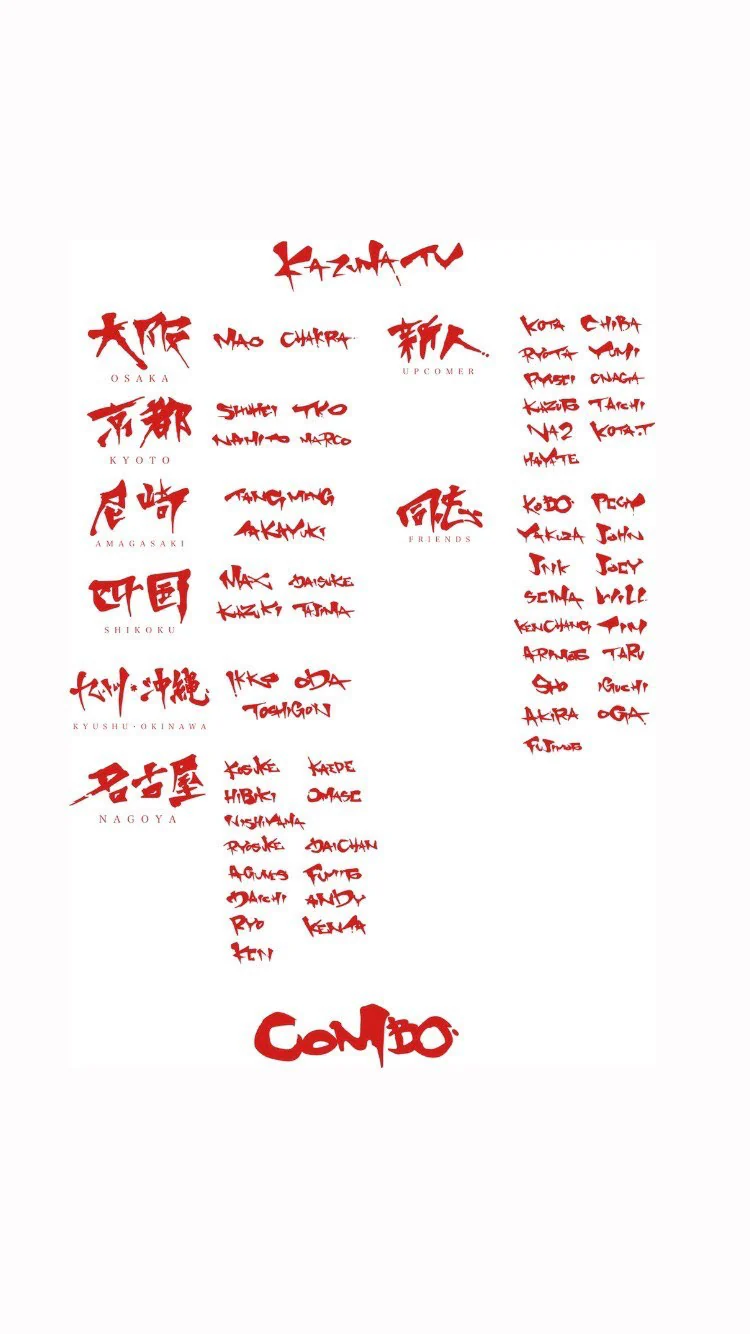 KAZUMA TV
大阪
OSAKA
MAO CHAKRA
京都
KYOTO
SHUHEI TKO
NAHITO MARCO
尼崎
AMAGASAKI
TANGMENG
TAKAYUKI
四国
SHIKOKU
MAX DAISUKE
KAZUKI TAJIMA
九州・沖縄
KYUSHU・OKINAWA
IKKO ODA
TOSHIGON
名古屋
NAGOYA
KOSUKE KAEDE
HIBIKI OMASE
NISHIYAMA
RYOSUKE DAICHAN
AGUNES FUMITO
DAICHI ANDY
RYO KENTA
KEN
新人
UPCOMER
KOTA CHIBA
RYOTA YUMI
RYUSEI ONAGA
KAZUTO TAICHI
NA2 KOTA.T
HAYATE
同志
FRIENDS
KODO PEGY
YAKUZA JOHN
INK JOEY
SEIMA WILL
KENCHANG TIM
TARU
SHO IGUCHI
AKIRA OGA
COMBO